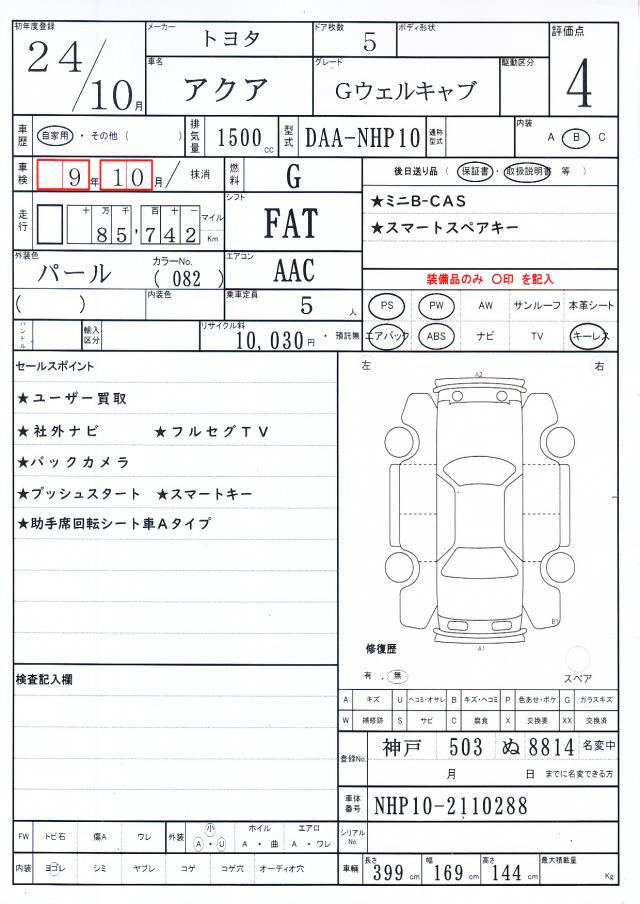 初年度登録 メーカー トヨタ ドア枚数 5 ボディ形状 評価点
24/10月 車名 アクア グレード Gウェルキャブ 駆動区分 4
車歴 自家用 ・ その他 ( ) 排気量 1500 cc 型式 DAA-NHP10 通称型式 内装 A B C
車検 9年 10月/ 抹消 燃料 G 後日送り品 ( 保証書 ・ 取扱説明書 等 )
走行 十 万 千 百 十 一 85,742 マイル Km シフト FAT ★ミニB-CAS
★スマートスペアキー
外装色 パール カラーNo. ( 082 ) エアコン AAC 装備品のみ 〇印 を記入
( ) 内装色 乗車定員 5 人 PS PW AW サンルーフ 本革シート
ハンドル 輸入区分 リサイクル料 10,030 円 ・ 預託無 エアバック ABS ナビ TV キーレス
セールスポイント 左 右
A2
★ユーザー買取
★社外ナビ ★フルセグTV
★バックカメラ
★プッシュスタート ★スマートキー
★助手席回転シート車Aタイプ
B1
A1
修復歴
有 . 無 スペア
検査記入欄
A キズ U ヘコミ・オサレ B キズ・ヘコミ P 色あせ・ボケ G ガラスキズ
W 補修跡 S サビ C 腐食 X 交換要 XX 交換済
登録No. 神戸 503 ぬ 8814 名変中
月 日 までに名変できる方
車体番号 NHP10-2110288
FW トビ石 傷A ワレ 外装 小 A ・ U ホイル A ・ 曲 エアロ A ・ ワレ シリアルNo.
内装 ヨゴレ シミ ヤブレ コゲ コゲ穴 オーディオ穴 車輌 長さ 399 cm 幅 169 cm 高さ 144 cm 最大積載量 Kg